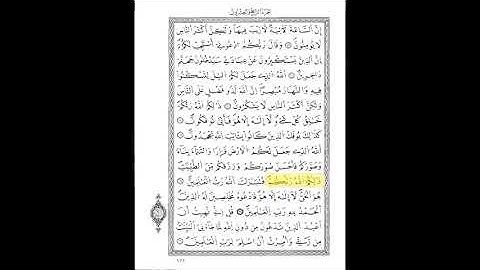 إن الساعة لآتية لا ريب فيها ولكن أكثر الناس
لا يؤمنون وقال ربكم ادعوني أستجب لكم
إن الذين يستكبرون عن عبادتي سيدخلون جهنم
داخرين الله الذي جعل لكم الليل لتسكنوا
فيه والنهار مبصرا إن الله لذو فضل على الناس
ولكن أكثر الناس لا يشكرون ذلكم الله ربكم
خالق كل شيء لا إله إلا هو فأنى تؤفكون
كذلك يؤفك الذين كانوا بآيات الله يجحدون
الله الذي جعل لكم الأرض قرارا والسماء بناء
وصوركم فأحسن صوركم ورزقكم من الطيبات
ذلكم الله ربكم فتبارك الله رب العالمين
هو الحي لا إله إلا هو فادعوه مخلصين له الدين
الحمد لله رب العالمين قل إني نهيت أن
أعبد الذين تدعون من دون الله لما جاءني البينات
من ربي وأمرت أن أسلم لرب العالمين